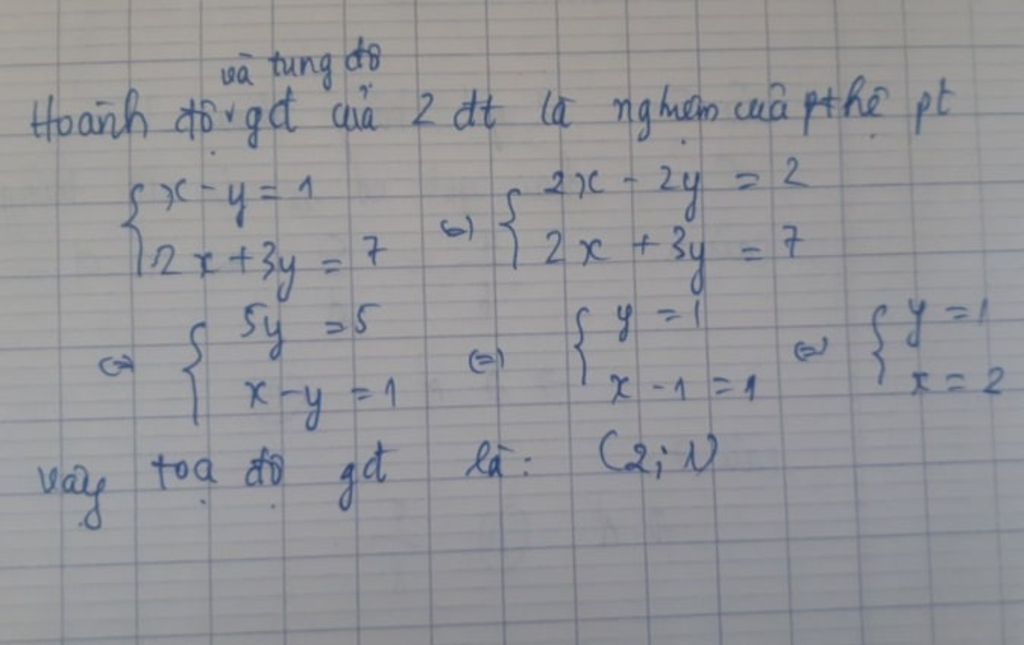 và tung độ
Hoành độ gđ của 2 đt là nghiệm của hệ pt
{ x - y = 1 <=> { 2x - 2y = 2
2x + 3y = 7 2x + 3y = 7
<=> { 5y = 5 <=> { y = 1 <=> { y = 1
x - y = 1 x - 1 = 1 x = 2
vậy toạ độ gđ là: (2; 1)